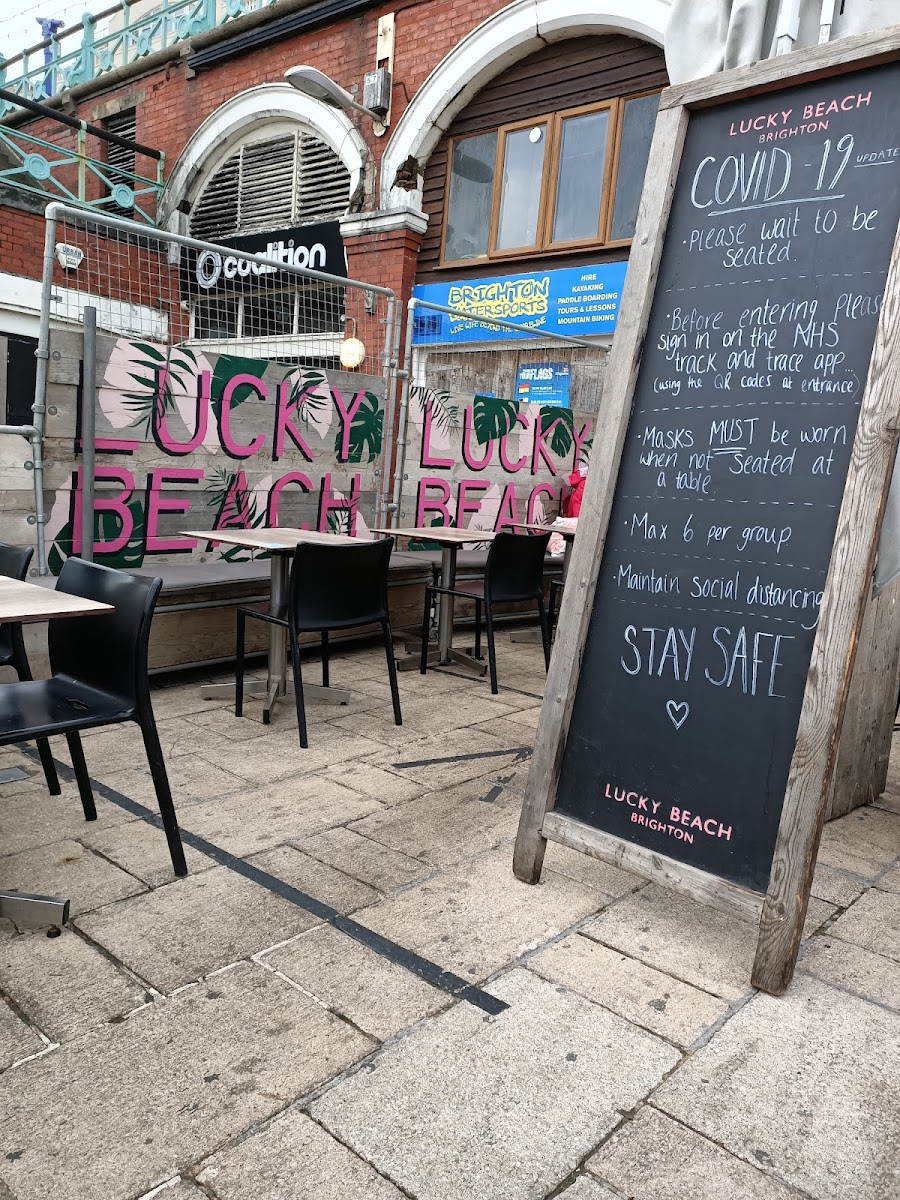 LUCKY BEACH
BRIGHTON
COVID-19 UPDATE
• Please wait to be
seated.
• Before entering please
sign in on the NHS
track and trace app...
(using the QR codes at entrance)
• Masks MUST be worn
when not seated at
a table.
• Max 6 per group.
• Maintain social distancing
STAY SAFE
LUCKY BEACH
BRIGHTON
coalition
BRIGHTON
WATERSPORTS
HIRE
KAYAKING
PADDLE BOARDING
TOURS & LESSONS
MOUNTAIN BIKING
FLAGS
LUCKY
BEACH
LUCKY
BEACH